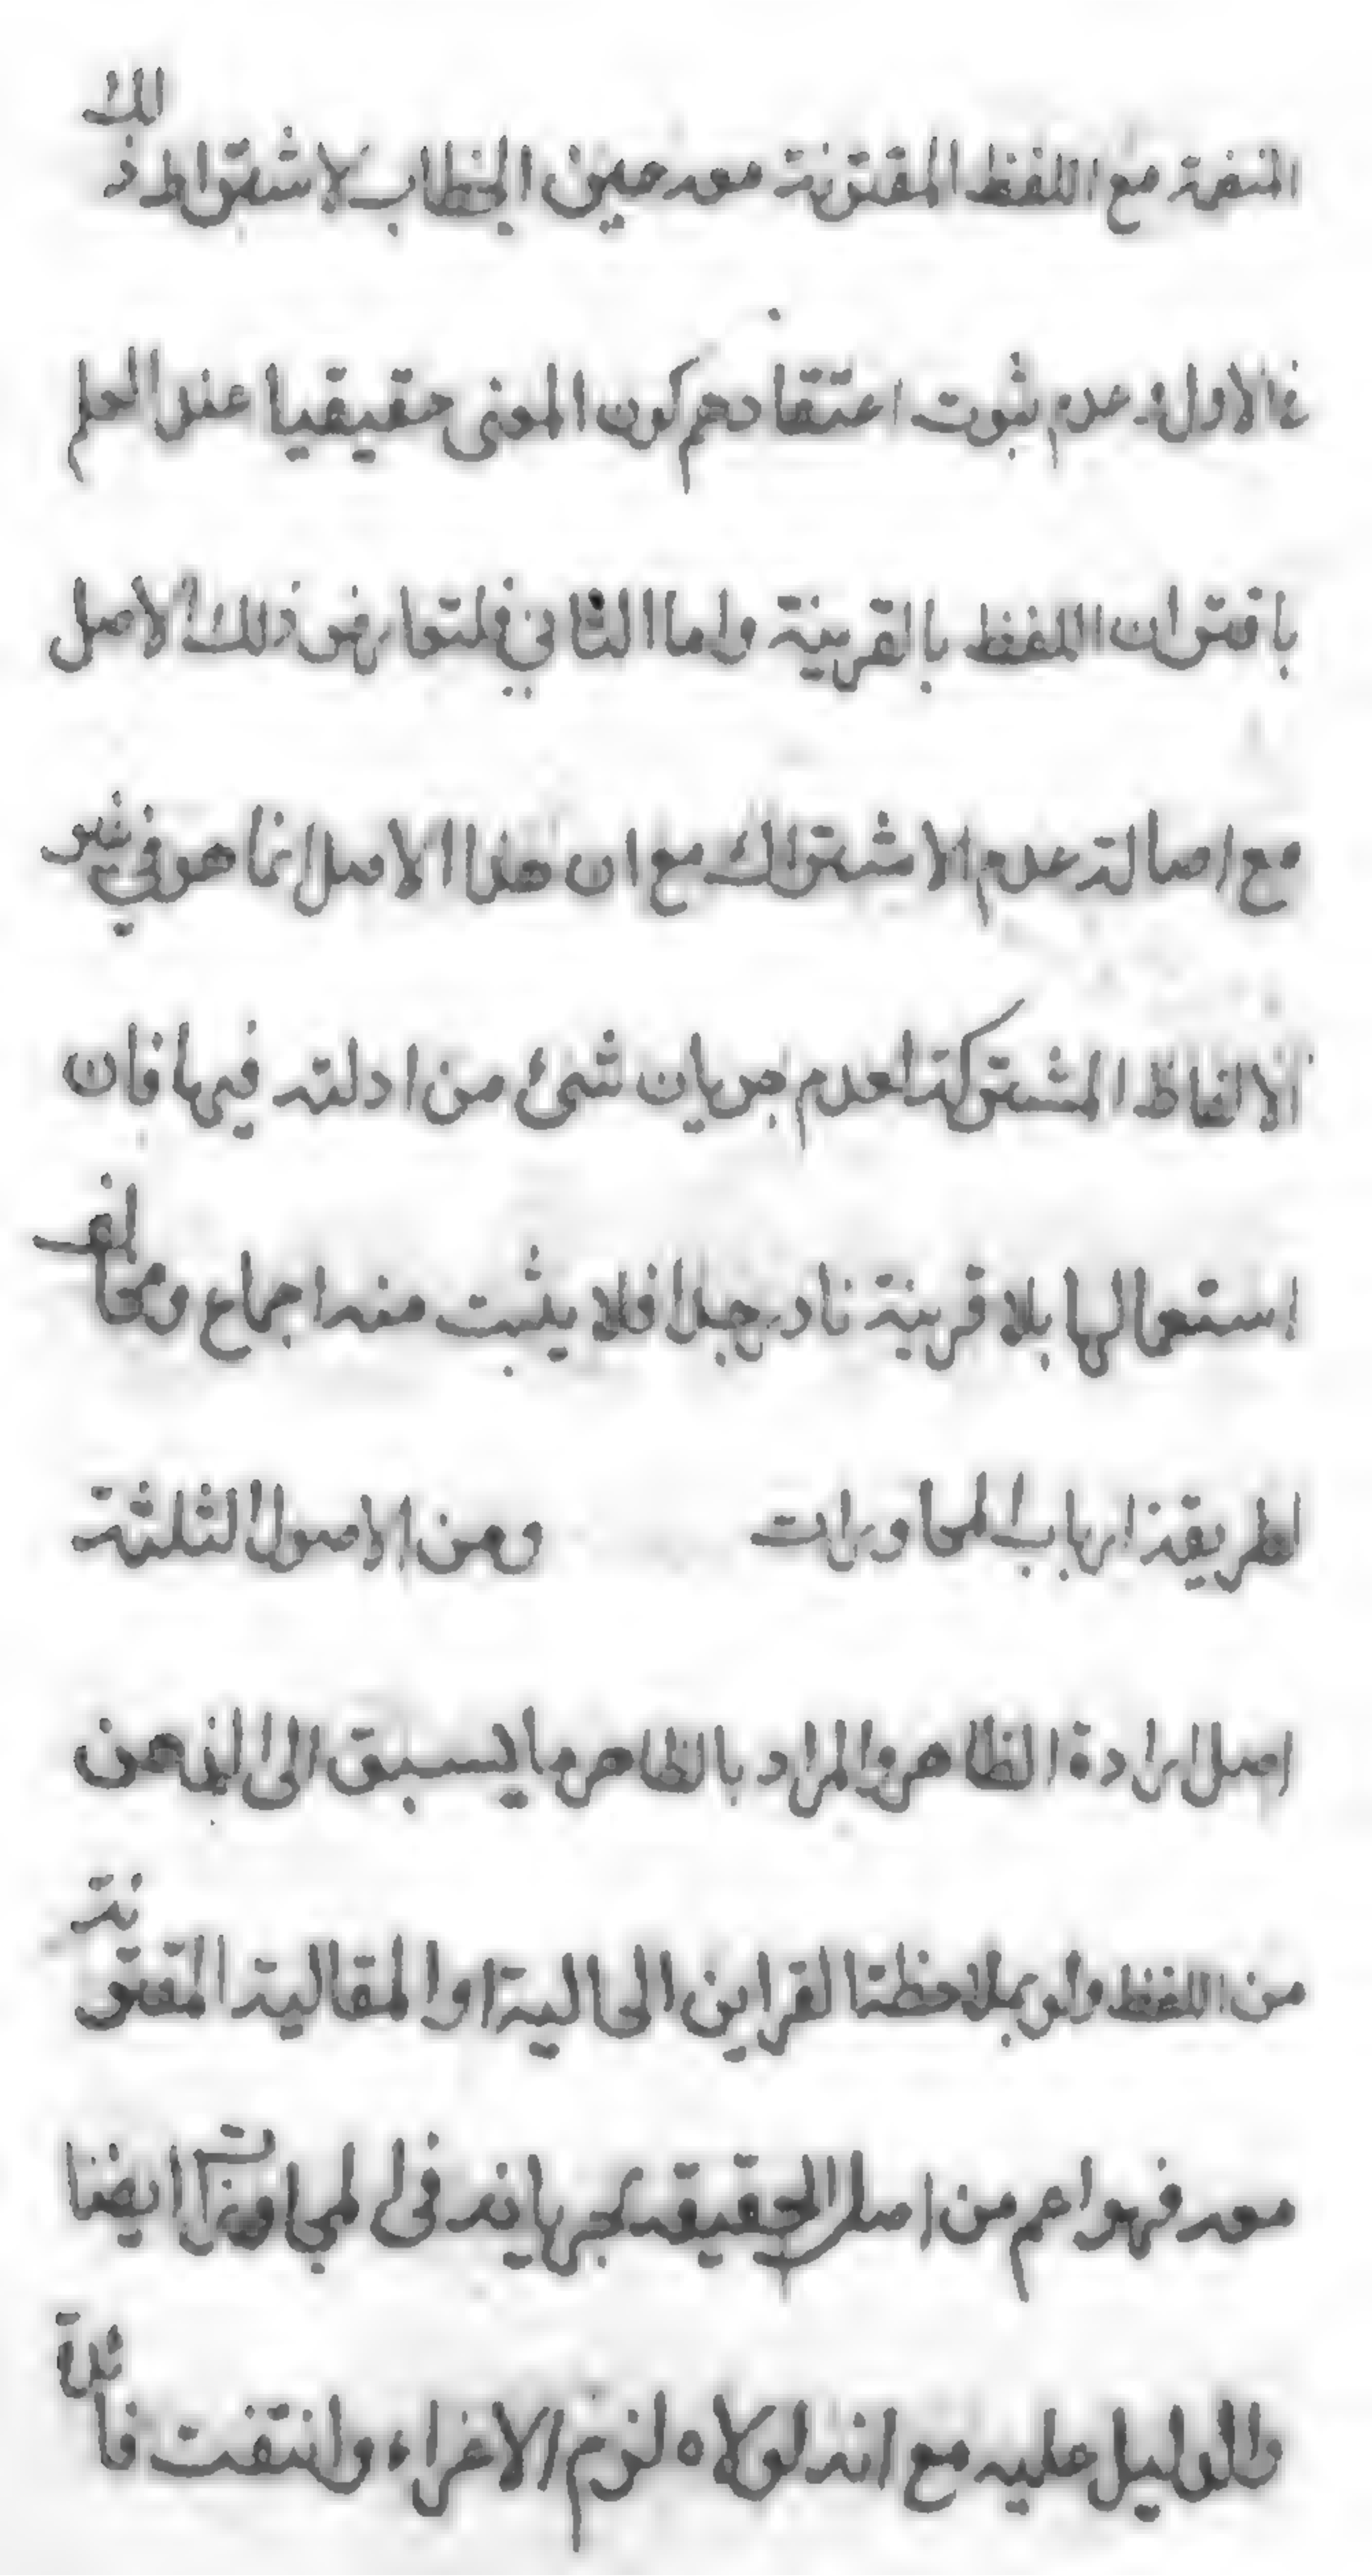 المنضمة مع اللفظ المقترنة معه حين الخطاب لاشتراط ذلك
في الاول و عدم ثبوت اعتقادهم كون المعنى حقيقيا عند العلم
باقتران اللفظ بالقرينة واما الثاني فلتعارض ذلك الاصل
مع اصالة عدم الاشتراك مع ان هذا الاصل انما هو في غير
الالفاظ المشتركة لعدم جريان شئ من ادلته فيها فان
استعمالها بلا قرينة نادر جدا فلا يثبت منه اجماع ومخالف
لطريقة ارباب المحاورات ومن الاصول الثلثة
اصل ارادة الظاهر والمراد بالظاهر ما يسبق الى الذهن
من اللفظ ولو بملاحظة القراين الحالية او المقالية المقترنة
معه فهو اعم من اصل الحقيقة لجريانه في المجاوزات ايضا
والدليل عليه مع انه لولاه لزم الاغراء وانتفت فائدة